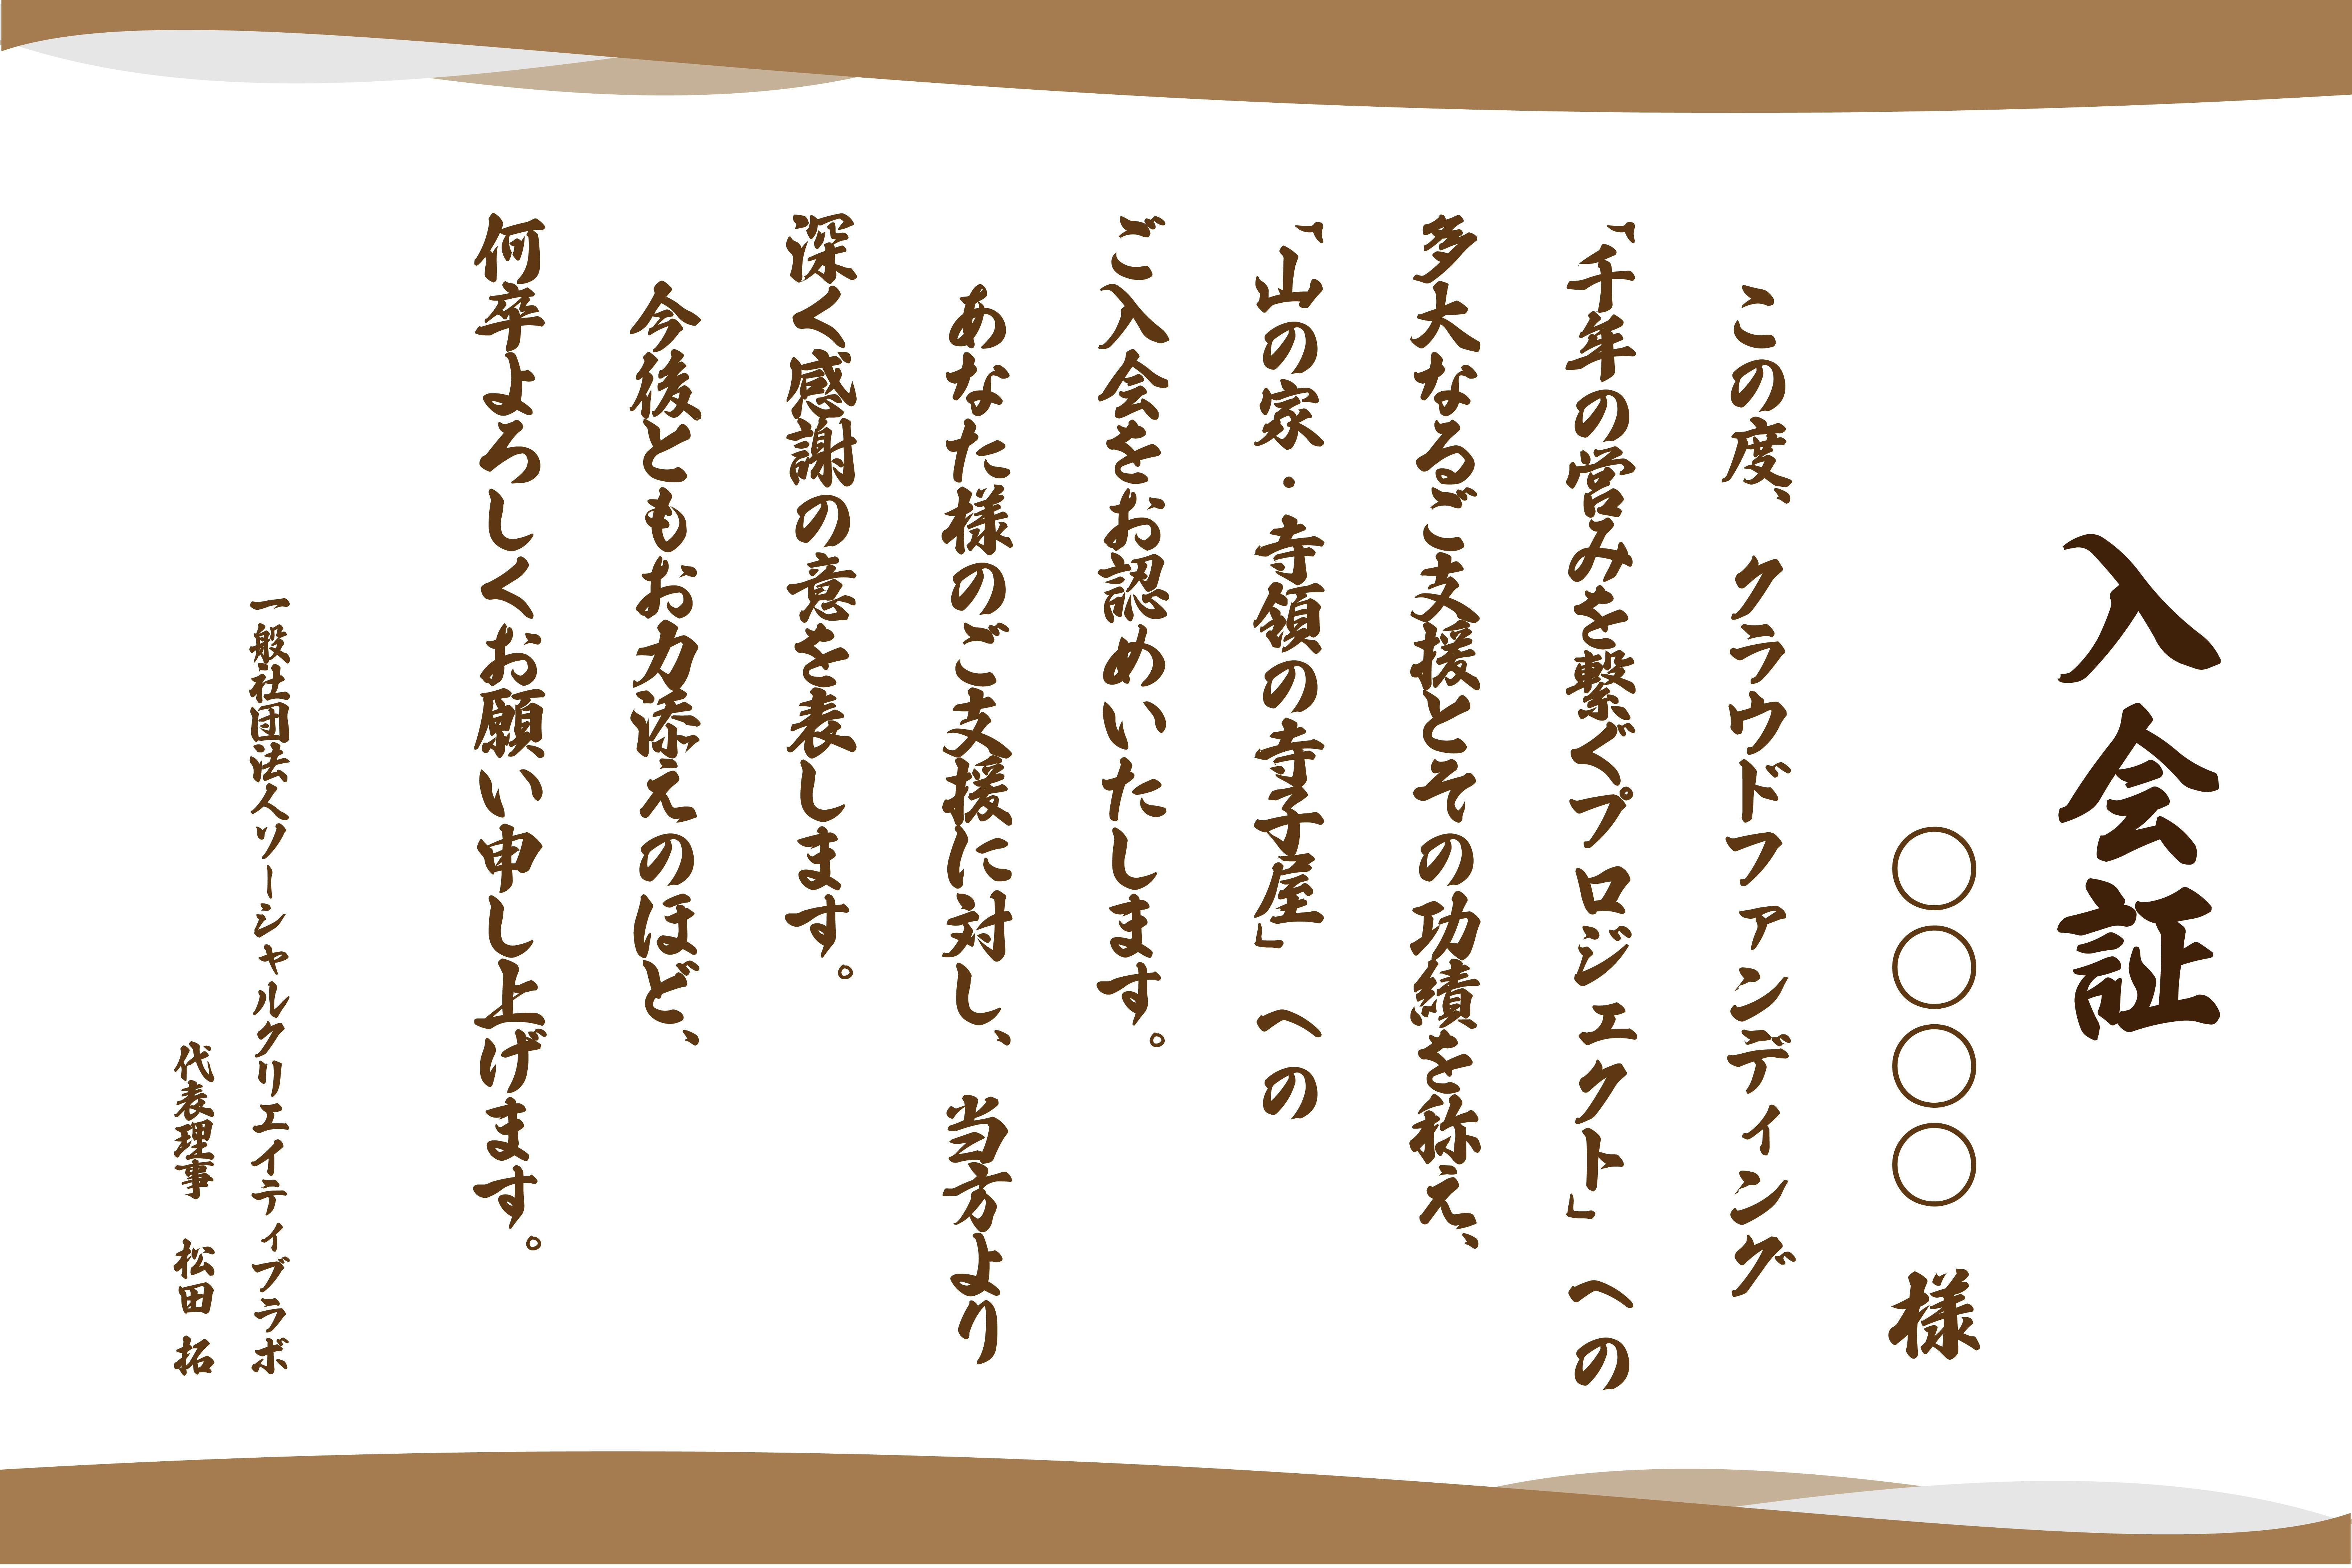 入会証
〇〇〇〇 様
この度、クラウドファンディング
「千年の営みを繋ぐプロジェクト」への
多大なるご支援とその功績を称え、
「山の泉・寺領の寺子屋」への
ご入会をお認めいたします。
あなた様のご支援に対し、当方より
深く感謝の意を表します。
今後ともお力添えのほど、
何卒よろしくお願い申し上げます。
一般社団法人ソーシャルクリエイティブラボ
代表理事 松田 拓